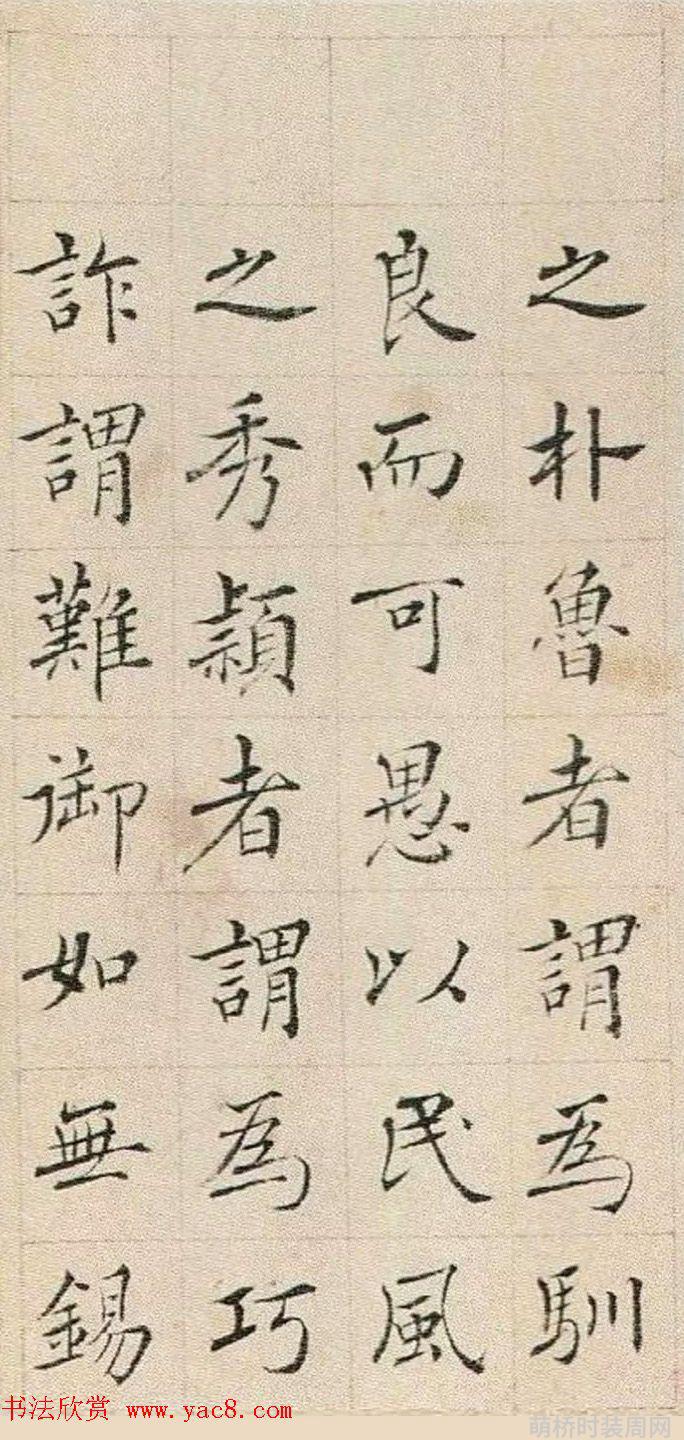 之朴魯者謂為馴
良而可愚以民風
之秀頴者謂為巧
詐謂難御如無錫
书法欣赏 www.yac8.com
萌桥时装周网